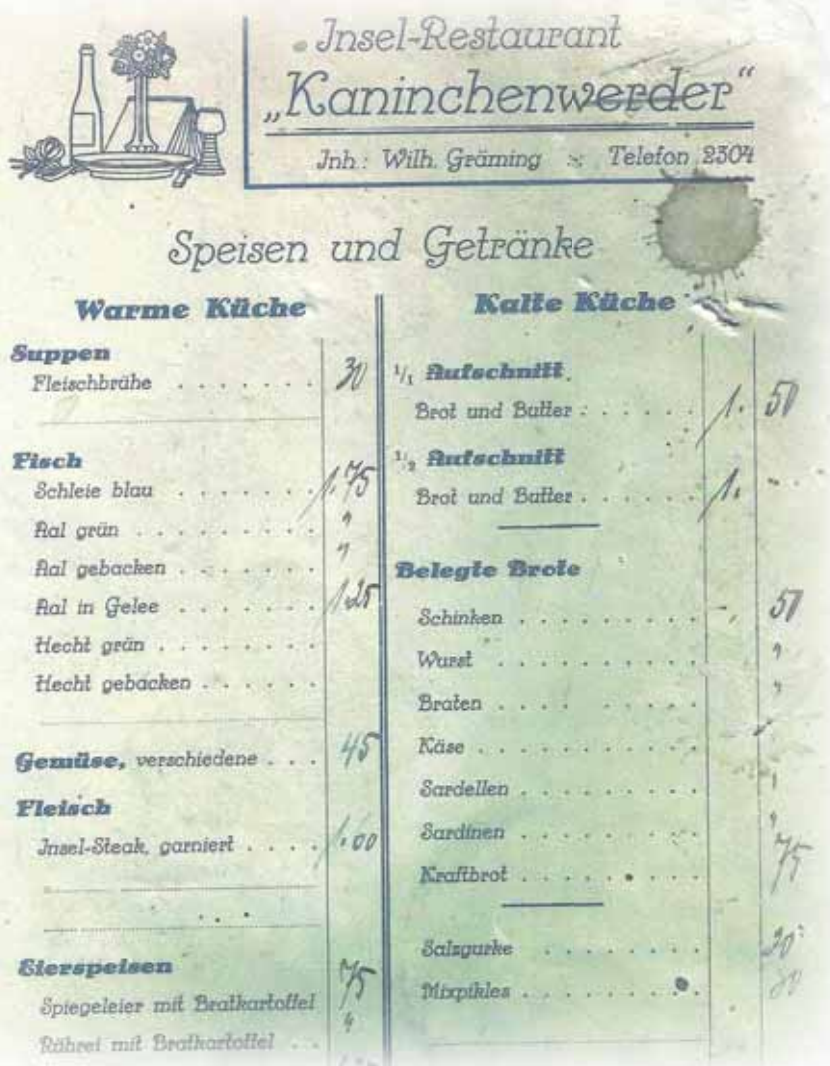 Insel-Restaurant
„Kaninchenwerder“
Inh.: Wilh. Gräming : Telefon 2304
Speisen und Getränke
Warme Küche
Suppen
Fleischbrühe . . . . . . . 30
Fisch
Schleie blau . . . . . . . 1.75
Aal grün . . . . . . . . . "
Aal gebacken . . . . . . . "
Aal in Gelee . . . . . . . 1.25
Hecht grün . . . . . . . .
Hecht gebacken . . . . . .
Gemüse, verschiedene . . . 45
Fleisch
Insel-Steak, garniert . . . . 1.00
Eierspeisen
Spiegeleier mit Bratkartoffel 75
Rührei mit Bratkartoffel . . "
Kalte Küche
1/1 Aufschnitt
Brot und Butter . . . . . . 1. 50
1/2 Aufschnitt
Brot und Butter . . . . . . 1. -
Belegte Brote
Schinken . . . . . . . . . - 50
Wurst . . . . . . . . . . "
Braten . . . . . . . . . . "
Käse . . . . . . . . . . .
Sardellen . . . . . . . . . "
Sardinen . . . . . . . . . "
Kraftbrot . . . . . . . . . 75
Salzgurke . . . . . . . . 20
Mixpikles . . . . . . . . .